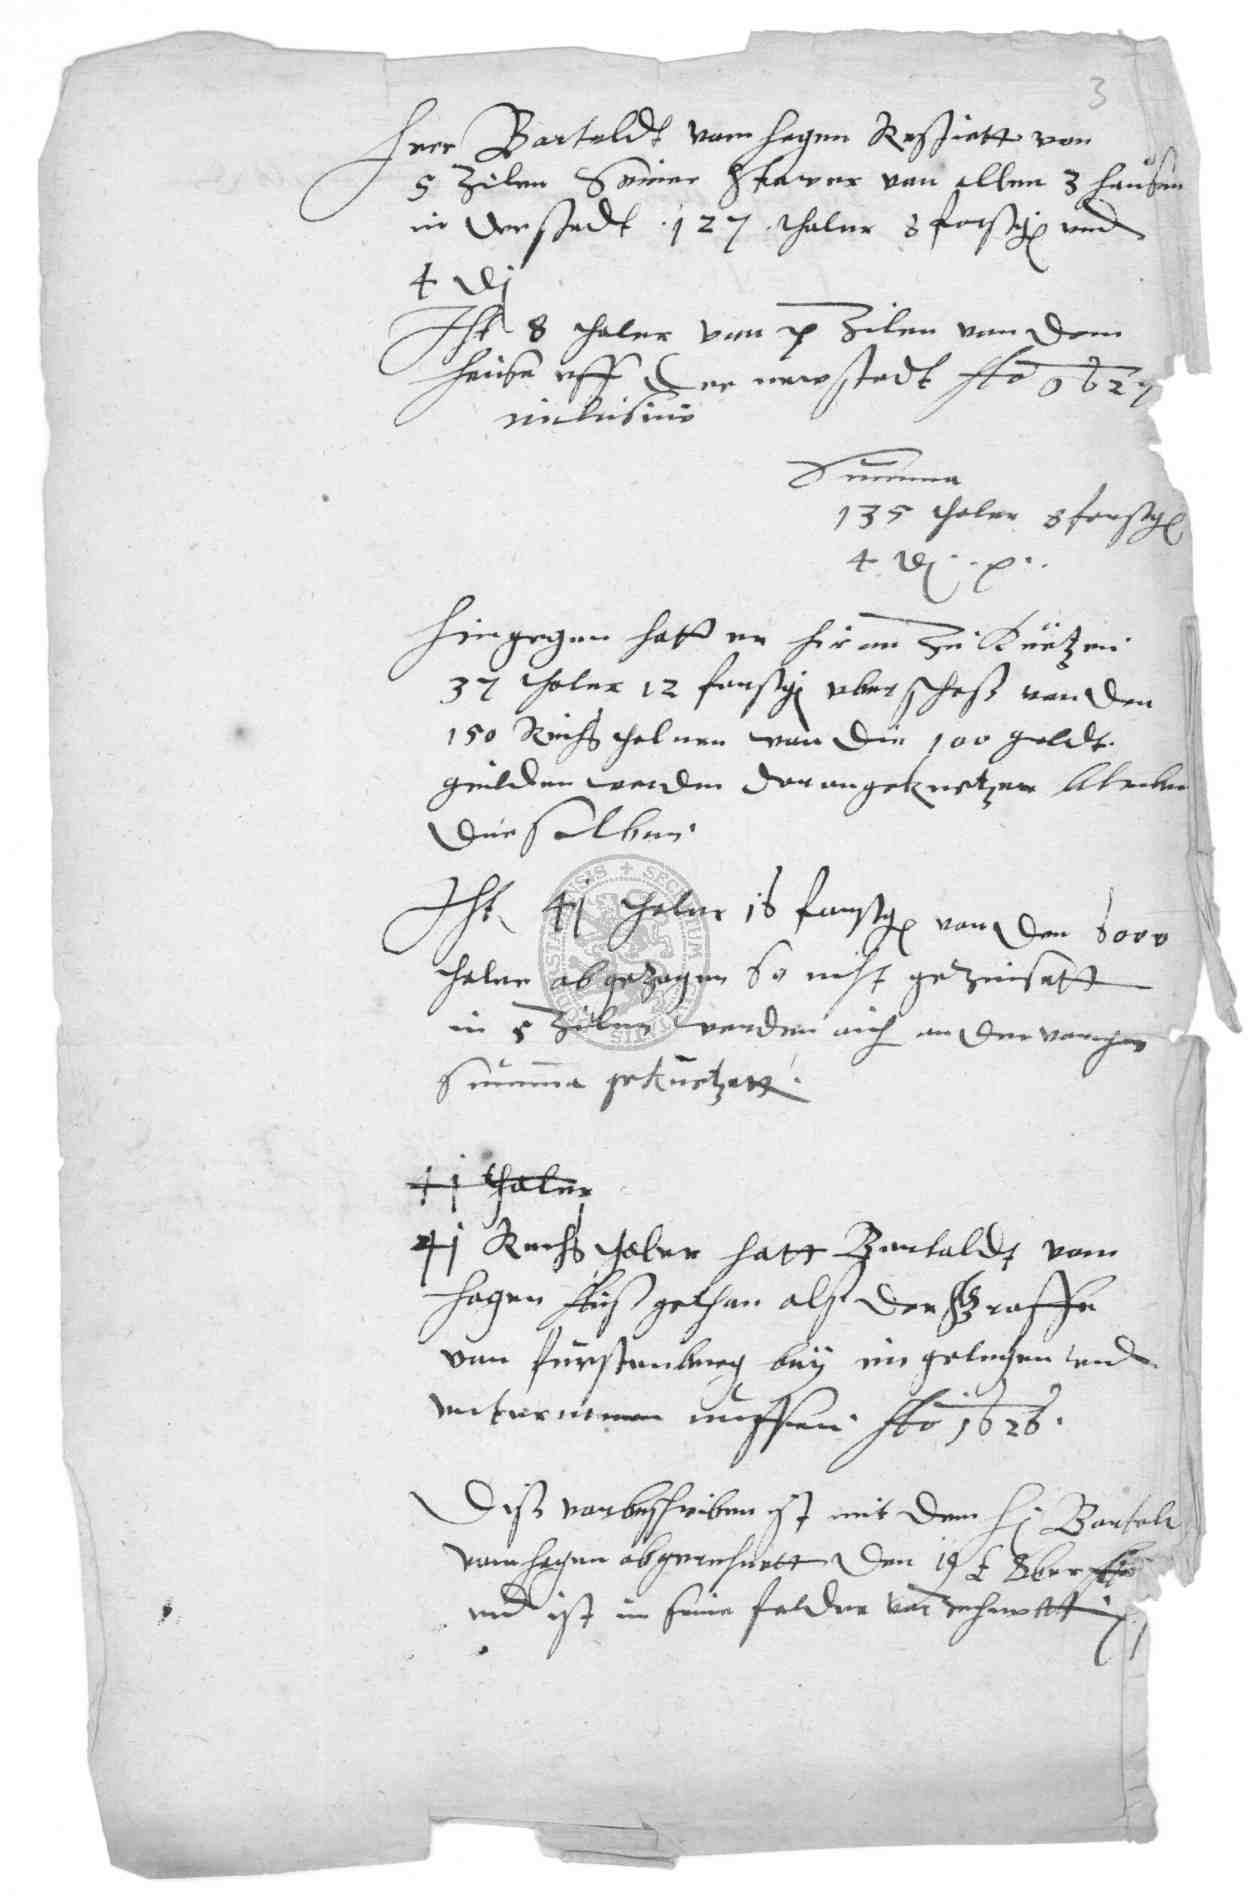 3
Herr Barteldt vom hagen Restiett von
5 Zilen Seiner Stewer von allen 3 heusern
in der stadt 127 thaler 8 furstg und
4 d
It 8 thaler von p Zilen von dem
heuse uff der newstadt Ao 1627
inclusive
Summa
135 thaler 8 furstg
4 d
Hingegen hatt er hir an Zu Kürtzen
37 thaler 12 furstg uberschoß von den
150 Reichsthalern von die 100 goldt
gulden werden daran gekurtzet bleiben
die selben
It 41 thaler 16 furstg von den 6000
thaler abgezogen so nicht gezinsett
in 5 Zilen werden auch an der vorigen
Summa gekurtzett
41 thaler
41 Reichsthaler hatt Barteldt vom
hagen außgethan als der Graffe
von furstenberg bey im gelegen und
mussen Ao 1626
Diß vorbeschriben ist mit dem H Bartelt
vom hagen abgerechnett den 19 8ber
und ist in seine felder verzechnett
SECRETUM